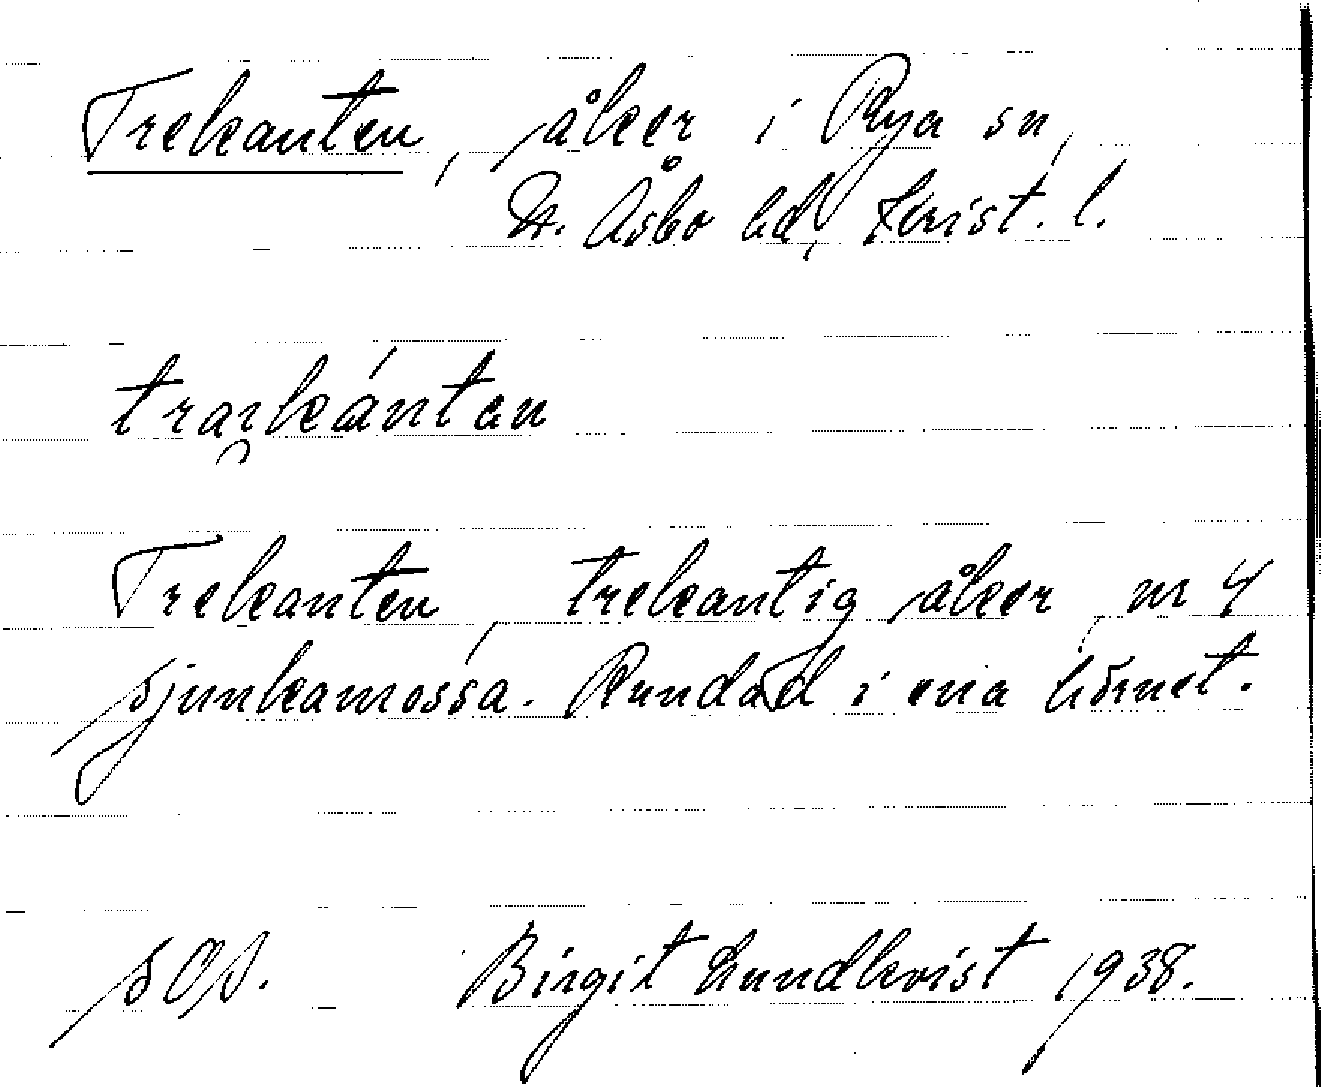 Trekanten, åker i Rya sn,
N. Åsbo hd, Krist. l.
Trekanten, trekantig åker, nr 4
Sjunkamossa. Rundad i ena hörnet.
Birgit Lundkvist 1938.